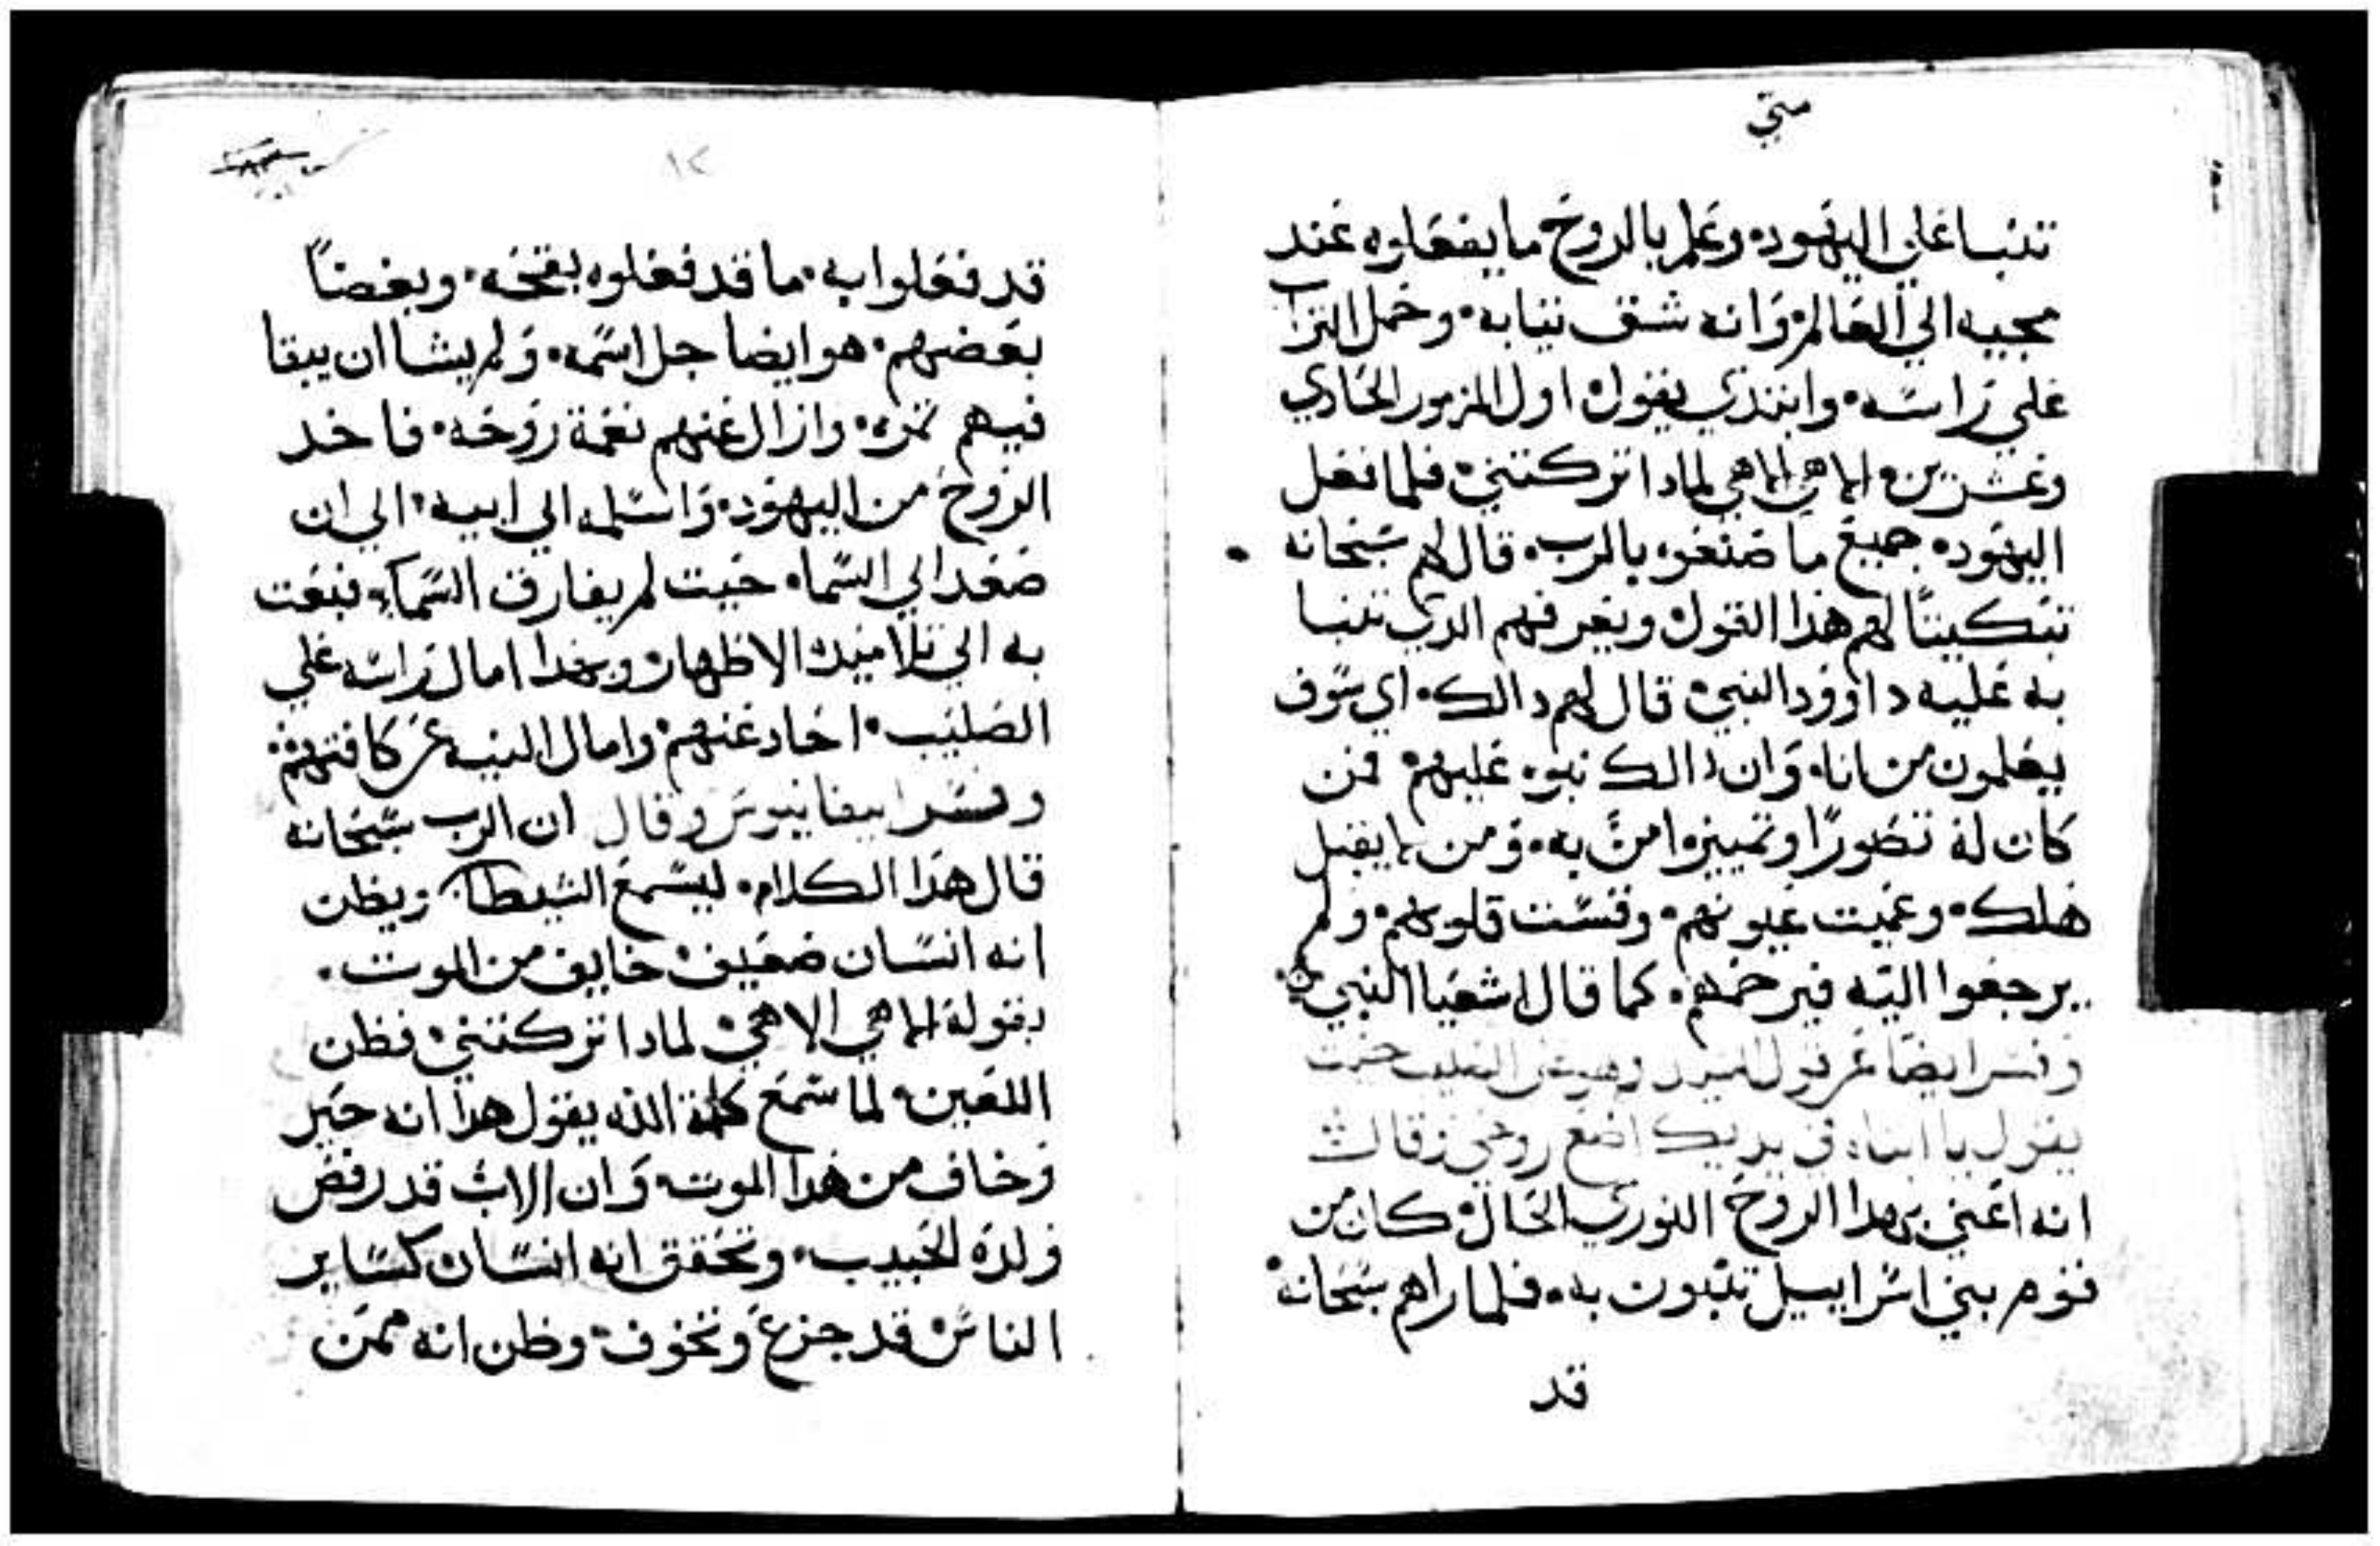 متي
تنبا علي اليهود وعلم بالروح ما يفعلوه عند
مجيه الي العالم وانه شق تيابه وحمل التراب
علي راسه وابتدي يقول اول المزمور الحادي
وعشرين الاهي الاهي لمادا تركتني فلما فعل
اليهود جميع ما صنعوه بالرب قال لهم سبحانه
تبكيتًا لهم هذا القول ويعرفهم الدي تنبا
به عليه داوود النبي قال لهم دالك اي سوف
يعلمون من انا وان دالك نبوه عليهم فمن
كان له تصورًا وتمييز امن به ومن لا يقبل
هلك وعميت عيونهم وقست قلوبهم ولم
يرجعوا اليه فيرحمهم كما قال اشعيا النبي
وفسر ايضًا عن قول السيد وهو علي الصليب حيت
يقول يا ابتاه في يديك اضع روحي وقال
انه اعني بهدا الروح النوري الحال كان من
قوم بني اسراييل تنبون به فلما راهم سبحانه
قد
١٢
قد فعلوا به ما قد فعلوه بقحه وبغضًا
بعضهم هو ايضا جل اسمه ولم يشا ان يبقا
فيهم تمره وازال عنهم نعمة روحه فاخد
الروح من اليهود واسلمه الي ابيه الي ان
صعد الي السما حيت لم يفارق السماء فبعت
به الي تلاميده الاطهار وبهدا امال راسه علي
الصليب احاد عنهم وامال النيه عن كافتهم
وفسر ابيفانيوس وقال ان الرب سبحانه
قال هدا الكلام ليسمع الشيطان ويظن
انه انسان ضعيف خايف من الموت
بقوله الاهي الاهي لمادا تركتني فظن
اللعين لما سمع كلمة الله يقول هدا انه حير
وخاف من هدا الموت وان الاب قد رفض
ولده الحبيب وتحقق انه انسان كساير
الناس قد جزع وتخوف وظن انه ممن